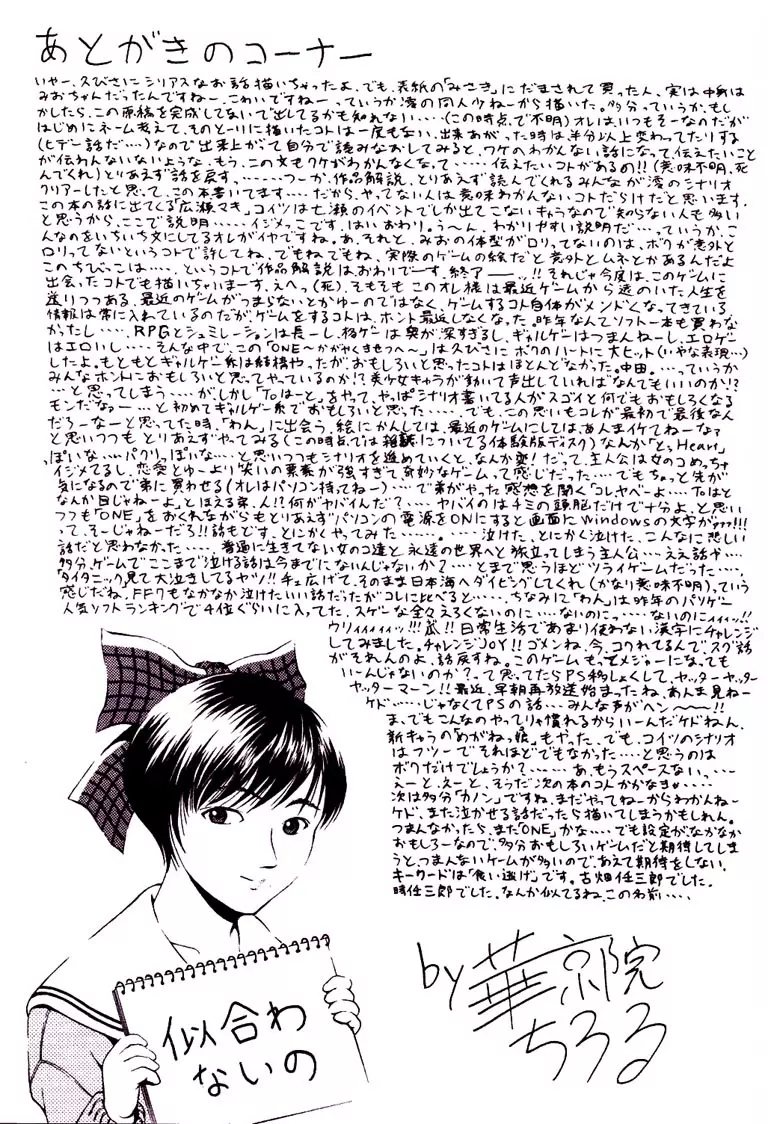 あとがきのコーナー
いやー、久びさにシリアスなお話描いちゃったよ。でも、表紙の「みさき」にだまされて買った人、実は中身は
みおちゃんだったんですねー。こわいですねー。っていうか澪の同人少ねーから描いた。多分っていうか、もし
かしたら、この原稿を完成してないで出してるかも知れない‥‥(この時点で不明)オレは、いつもそーなのだが
はじめにネーム考えて、そのとーりに描いたコトは一度もない。出来あがった時は半分以上変わってたりする
(ヒデー話だ‥‥)なので出来上がって自分で読みなおしてみると、ワケのわかんない話になって、伝えたいこと
が伝わんないないような。もう、この文もワケがわかんなくなって‥‥‥伝えたいコトがあるの!!(意味不明、死
んでくれ)とりあえず話を戻す。‥‥‥‥つーか、作品解説、とりあえず読んでくれるみんなが澪のシナリオ
クリアーしたと思って、この本書いてます‥‥だから、やってない人は意味わかんないコトだらけだと思います。
この本の話に出てくる「広瀬マキ」コイツは七瀬のイベントでしか出てこないキャラなので知らない人も多い
と思うから、ここで説明‥‥‥イジメっこです。はいおわり。う〜ん、わかりやすい説明だ‥‥っていうか、こ
んなのをいちいち文にしてるオレがイヤですね。あ、それと、みおの体型がロリってないのは、ボクが意外と
ロリってないというコトで許してね、でもねでもね、実際のゲームの絵だと意外とムネとかあるんだよ
このちびっこは‥‥、というコトで作品解説はおわりでーす。終了ァ――ッ!! それじゃ今度は、このゲームに
出会ったコトでも描いちゃいまーす。えへっ(死)。そもそもこのオレ様は最近ゲームから遠のいた人生を
送りつつある、最近のゲームがつまらないとかゆーのではなく、ゲームするコト自体がメンドくなってきている
情報は常に入れているのだが、ゲームをするコトは、ホント最近しなくなった。昨年なんてソフト一本も買わな
かったし‥‥、RPGとシュミレーションは長ーし、格ゲーは奥が深すぎるし、ギャルゲーはつまんねーし、エロゲー
はエロいし‥‥そんな中で、この「ONE〜かがやくきせつへ〜」は久びさにボクのハートに大ヒット(いやな表現‥‥)
したよ。もともとギャルゲー系は結構やったが、おもしろいと思ったコトはほとんどなかった。中田。‥‥っていうか
みんなホントにおもしろいと思ってやっているのか!?美少女キャラが動いて声出していればなんでもいいのか!?
‥‥と思ってしまう‥‥がしかし「Toはーと」をやって、やっぱシナリオ書いてる人がスゴイと何でもおもしろくなる
モンだなァー‥‥と初めてギャルゲー系でおもしろいと思った‥‥‥。でも、この思いもコレが最初で最後なん
だろーなーと思ってた時、「わん」に出会う、絵にかんしては、最近のゲームにしては、あんまイケてねーなァ
と思いつつもとりあえずやってみる(この時点では雑誌についてる体験版ディスク)なんか「とぅHeart」
っぽいな‥‥パクりっぽいな‥‥と思いつつもシナリオを進めていくと、なんか変!だって、主人公は女のコめっちゃ
イジメてるし、恋愛とゆーより笑いの要素が強すぎて奇妙なゲームって感じだった‥‥でもちょっと先が
気になるので弟に買わせる(オレはパソコン持ってねー)‥‥で弟がやった感想を聞く「コレヤベーよ‥‥Toはと
なんか目じゃねーよ」とほえる弟、人!?何がヤバイんだ?‥‥、ヤバイのはテメーの頭脳だけで十分よ、と思い
つつも「ONE」をおくれながらもとりあえずパソコンの電源をONにすると画面にWindowsの文字がァァァ!!!
って、そーじゃねーだろ!!話もどす。とにかくやってみた‥‥‥。‥‥‥泣けた、とにかく泣けた、こんなに悲しい
話だと思わなかった‥‥‥、普通に生きてない女のコ達と永遠の世界へと旅立ってしまう主人公‥‥ええ話や‥‥
多分、ゲームでここまで泣ける話は今までにないんじゃないか?‥‥とまで思うほどツライゲームだった‥‥‥、
「タイタニック」見て大泣きしてるヤツ!!チェ広げて、そのまま日本海へダイビングしてくれ(かなり意味不明)。っていう
感じだね、FF7もなかなか泣けたいい話だったがコレに比べると‥‥、ちなみに「わん」は昨年のパソゲー
人気ソフトランキングで4位ぐらいに入ってた。スゲーな全々えろくないのに‥‥ないのにっ‥‥ないのにィィィッ!!
ウリィィィィィッ!!!瓜!!日常生活であまり使わない漢字にチャレンジ
してみました。チャレンジJOY!!ゴメンね、今、コワれてるんで、スグ話
がそれんのよ、話戻すね。このゲーム、もってメジャーになっても
いーんじゃないのか?って思ってたらPS移しょくして、ヤッターヤッター
ヤッターマーン!!最近、早朝再放送始まったね、あんま見ねー
ケド‥‥‥じゃなくてPSの話‥‥みんな声がヘン〜〜〜!!
ま、でもこんなのやってりゃ慣れるからいーんだケドねん。
新キャラの「めがねっ娘」もやった、でも、コイツのシナリオ
はフツーでそれほどでもなかった‥‥と思うのは
ボクだけでしょうか?‥‥‥あ、もうスペースない、‥‥
えーと、えーと、そうだ次の本のコトかかなきゃ‥‥‥
次は多分「カノン」ですね、まだやってねーからわかんねー
ケド、また泣かせる話だったら描いてしまうかもしれん。
つまんなかったら、また「ONE」かな‥‥でも設定がなかなか
おもしろーなので、多分おもしろいゲームだと期待してしま
うと、つまんないゲームが多いので、あえて期待をしない。
キーワードは「食い逃げ」です。古畑任三郎でした。
時任三郎でした。なんか似てるね、この名前‥‥、
by 華京院
ちろる
似合わ
ないの